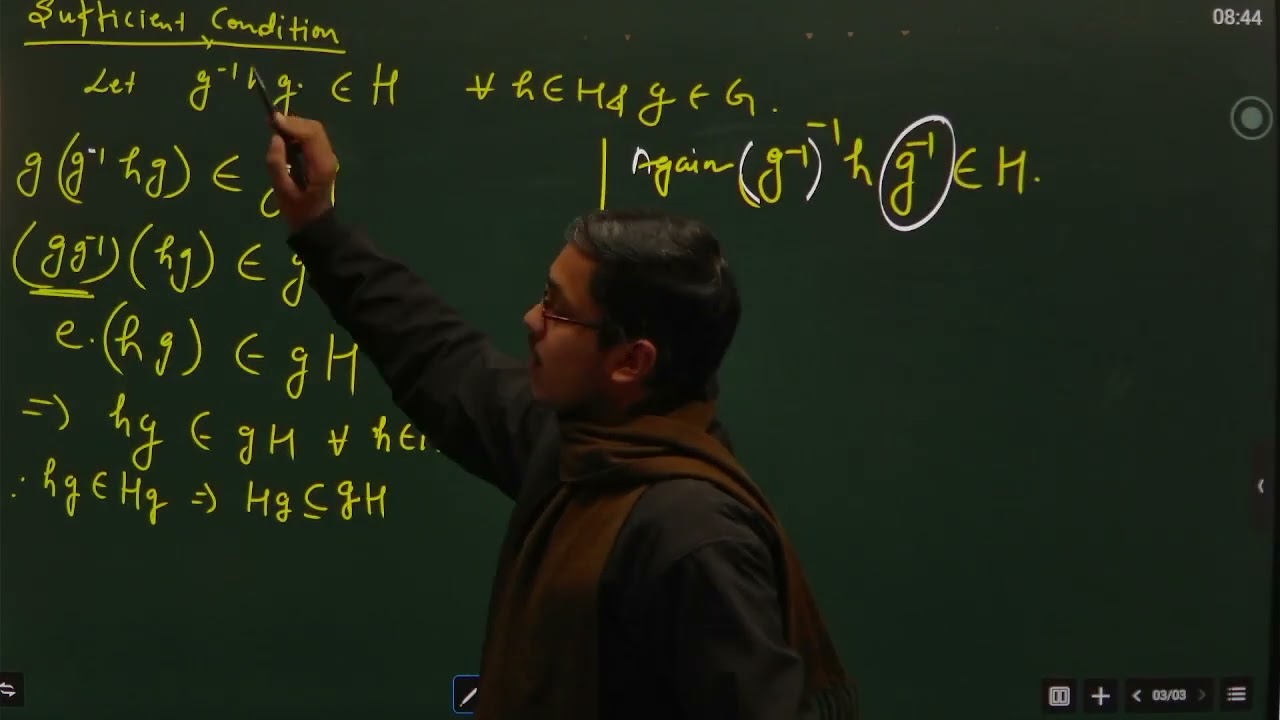 08:44
Sufficient Condition
Let g⁻¹hg. ∈ H ∀ h∈H & g ∈ G.
g(g⁻¹hg) ∈ g
(gg⁻¹)(hg) ∈ g
e.(hg) ∈ gH
=> hg ∈ gH ∀ h∈
∴ hg ∈ Hg => Hg ⊆ gH
Again (g⁻¹)⁻¹ h g⁻¹ ∈ H.
03/03